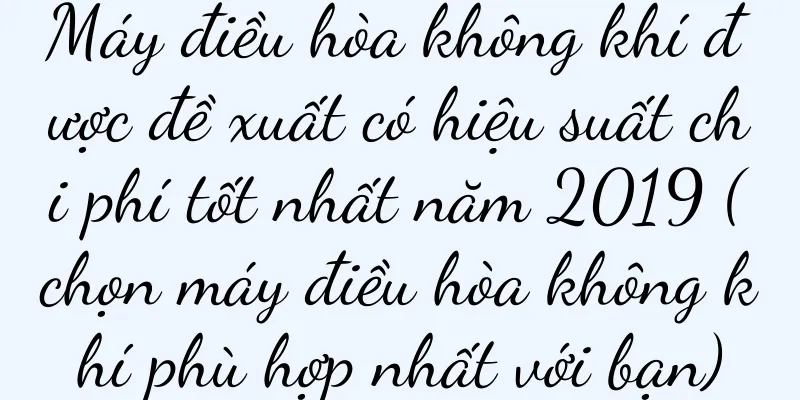 Máy điều hòa không khí đ
ược đề xuất có hiệu suất ch
i phí tốt nhất năm 2019 (
chọn máy điều hòa không k
hí phù hợp nhất với bạn)